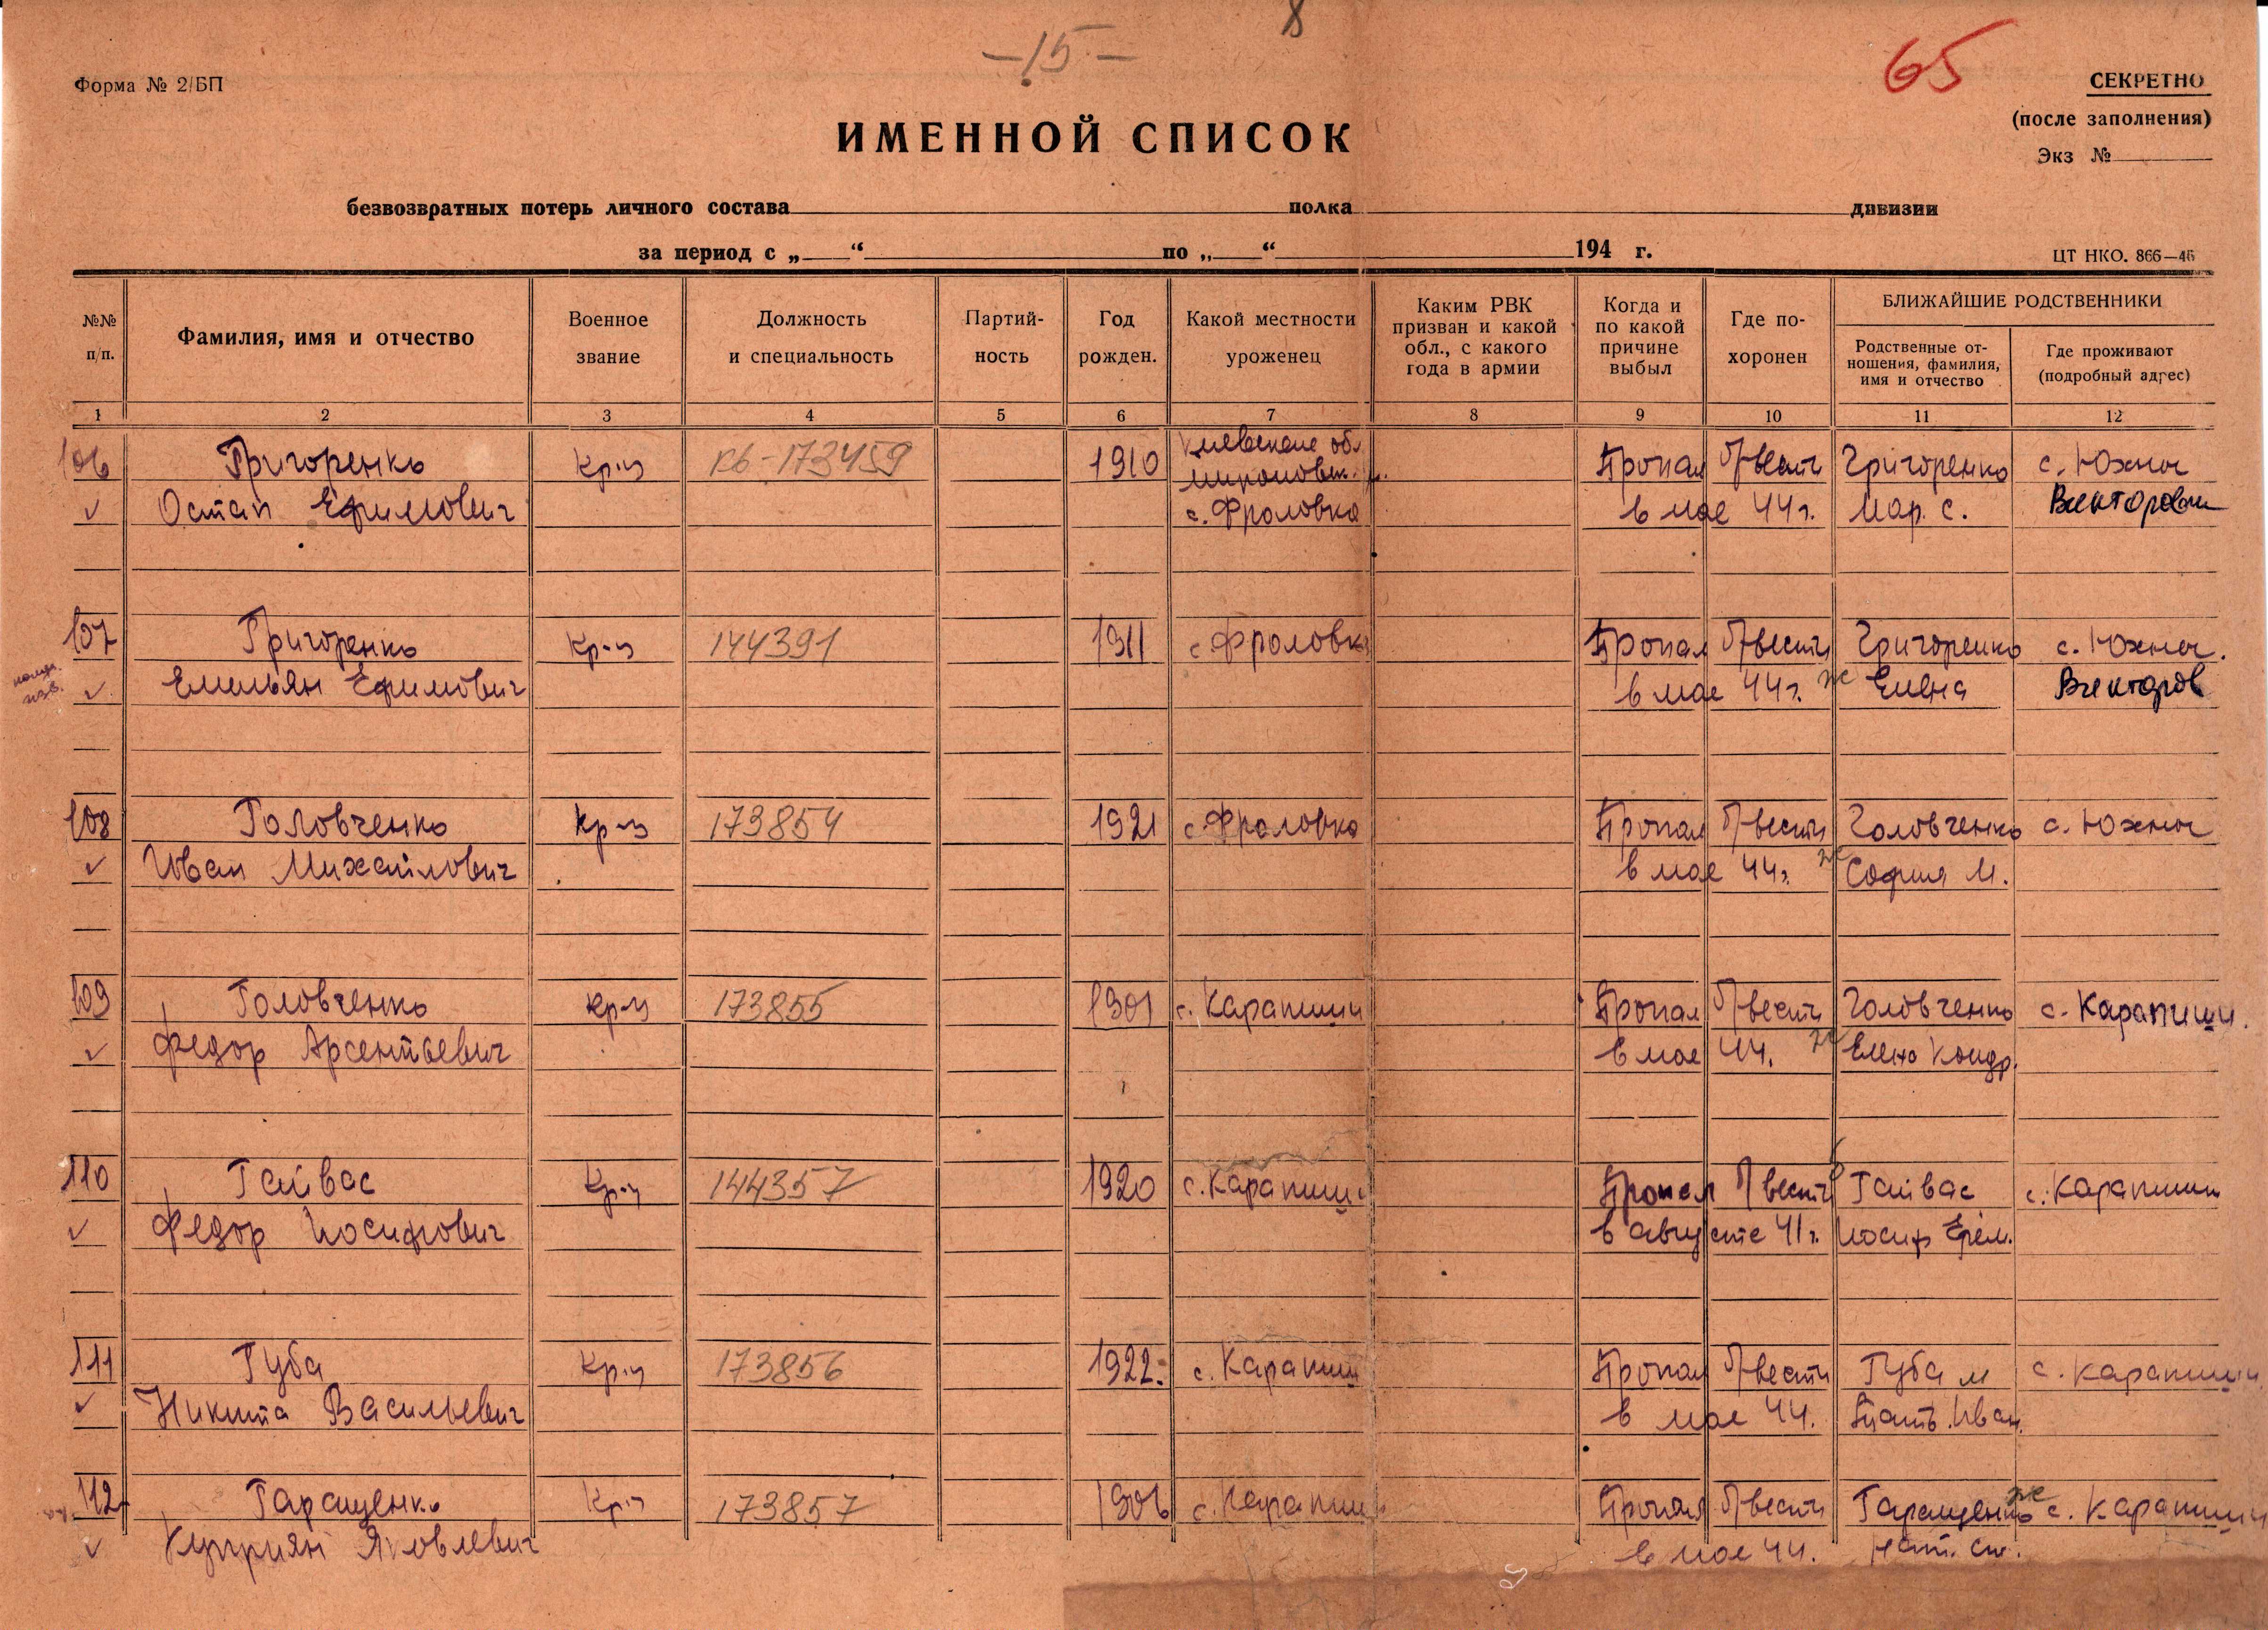 8
-15-
65
Форма № 2/БП
СЕКРЕТНО
(после заполнения)
Экз №
ИМЕННОЙ СПИСОК
безвозвратных потерь личного состава полка дивизии
за период с „ “ по „ “ 194 г.
ЦТ НКО. 866—46
№№ п/п.
Фамилия, имя и отчество
Военное звание
Должность и специальность
Партий- ность
Год рожден.
Какой местности уроженец
Каким РВК призван и какой обл., с какого года в армии
Когда и по какой причине выбыл
Где по- хоронен
БЛИЖАЙШИЕ РОДСТВЕННИКИ
Родственные от- ношения, фамилия, имя и отчество
Где проживают (подробный адрес)
1 2 3 4 5 6 7 8 9 10 11 12
Киевская обл
106 Григоренко Кр-ц Кб-173459 1910 Мироновск. Пропал б/вести Григоренко с. Южная
Остап Ефимович с. Фроловка в мае 44г. Мар. с.
107 Григоренко Кр-ц 144391 1911 с Фроловка Пропал б/вести Григоренко с. Южная.
Емельян Ефимович в мае 44г. ж Елена
108 Головченко Кр-ц 173854 1921 с. Фроловка Пропал б/вести Головченко с. Южная
Иван Михайлович в мае 44г. ж София М.
109 Головченко Кр-ц 173855 1901 с. Карапиши Пропал б/вести Головченко с. Карапиши.
Федор Арсентьевич в мае 44. ж Елена Кондр.
110 Гайвас Кр-ц 144357 1920 с. Карапиши Пропал б/вести Гайвас с. Карапиши
Федор Иосифович в августе 41г. Иосиф Ерем.
111 Губа Кр-ц 173856 1922. с. Карапиши Пропал б/вести Губа м с. Карапиши
Никита Васильевич в мае 44. Иван.
112 Гаращенко Кр-ц 173857 1906 с. Карапиши Пропал б/вести Гаращенко ж с. Карапиши
Куприян Яковлевич в мае 44. Нат.